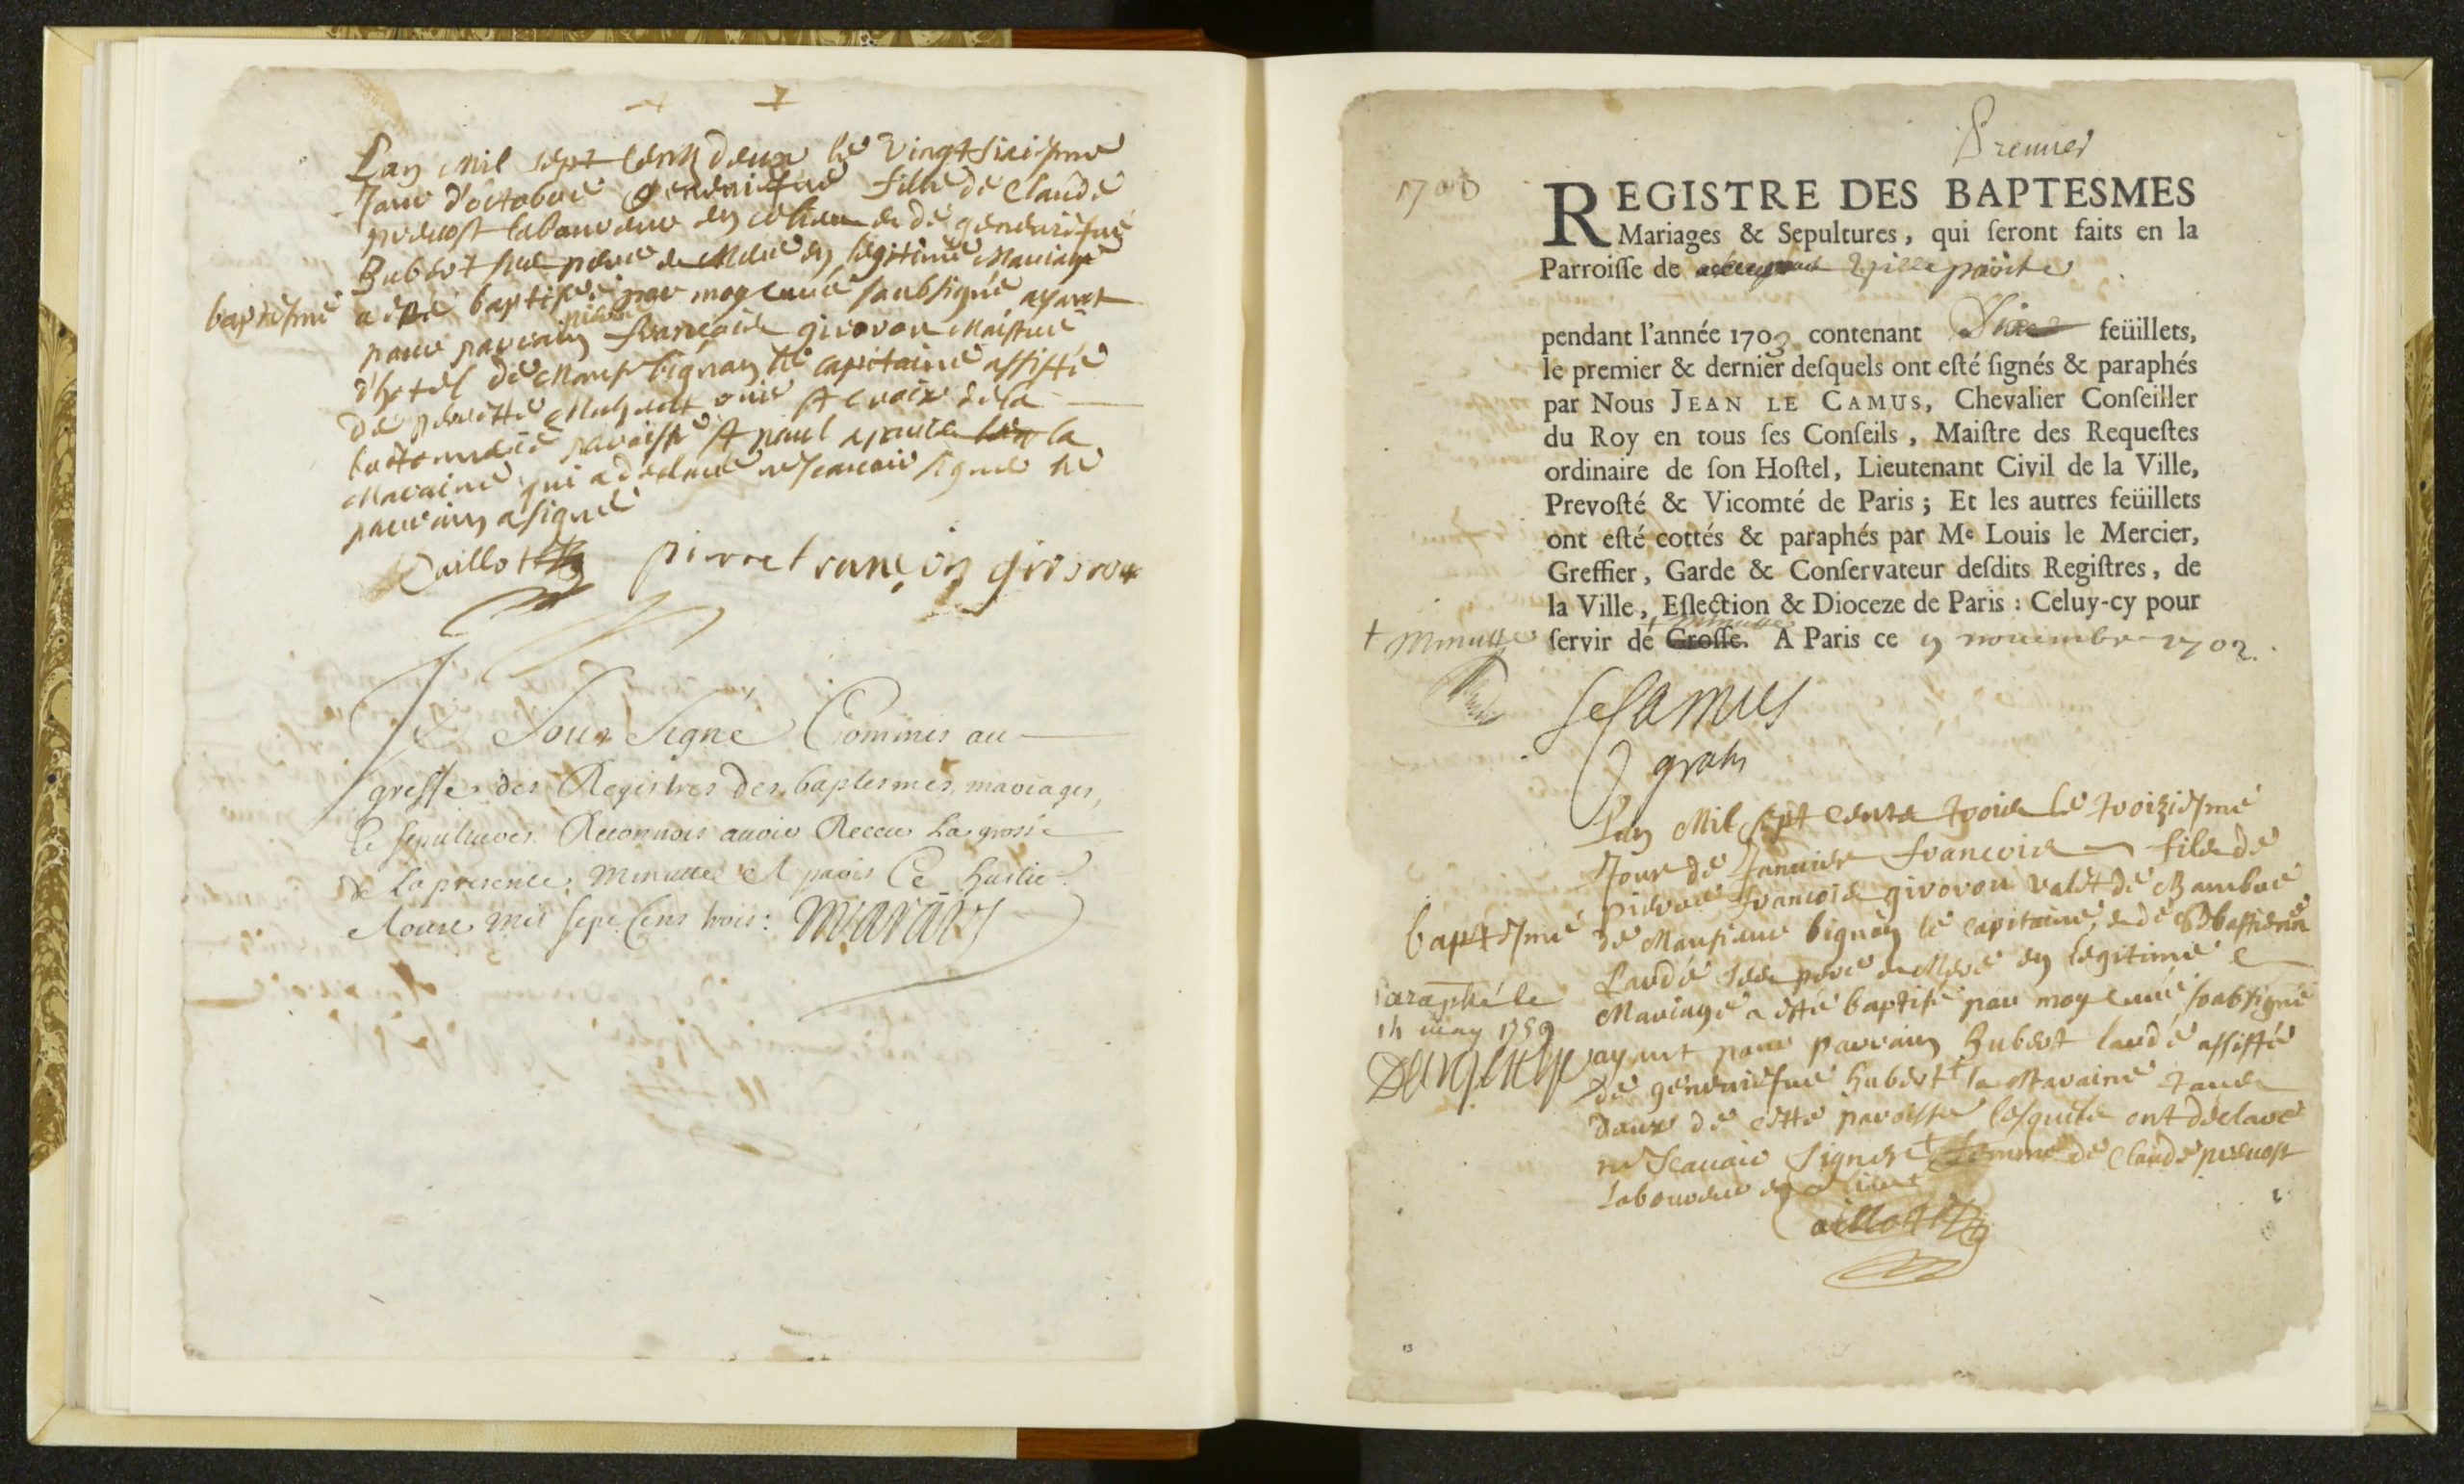 L'an Mil sept cents deux le vingt sixiesme
Jour d'octobre geneuiefue fille de Claude
preuost laboureur en ce lieu et de geneuiefue
Hubert ses pere et Mere en legitime Mariage
baptesme
a esté baptisée par moy curé soubsigné ayant
pour parrain pierre francois giroron Maistre
d'hotel de Monsr bignon le capitaine assisté
de perrette
parroisse St paul a paris la
Maraine qui a declaré ne scauoir signer le
parrain a signé
Caillott pierre françois giroron
Je Sous Signé Commis au
greffe des Registres des baptesmes, mariages,
& sepultures Reconnois auoir Receu La grosse
de La presente Minutte A paris Ce huitie
mil sept Cens trois:
Premier
1703
REGISTRE DES BAPTESMES
Mariages & Sepultures, qui ſeront faits en la
Parroiſſe de
pendant l'année 1703 contenant feüillets,
le premier & dernier deſquels ont eſté ſignés & paraphés
par Nous JEAN LE CAMUS, Chevalier Conſeiller
du Roy en tous ſes Conſeils, Maiſtre des Requeſtes
ordinaire de ſon Hoſtel, Lieutenant Civil de la Ville,
Prevoſté & Vicomté de Paris; Et les autres feüillets
ont eſté cottés & paraphés par Me Louis le Mercier,
Greffier, Garde & Conſervateur deſdits Regiſtres, de
la Ville, Eſlection & Dioceze de Paris: Celuy-cy pour
† Minutte
ſervir de Groſſe. † minutte A Paris ce 9 nouembre 1702.
LeCamus
gratis
L'an Mil sept cents trois le troiziesme
Jour de Januier francois fils de
pierre francois giroron valet de chambre
baptesme
de Monsieur bignon le capitaine, et de Sebastienne
Laudé ses pere et Mere en legitime
Mariage a esté baptisé par moy curé soubsigné
Paraphé le
14 may 1759
ayant pour parrain Hubert laudé assisté
de geneuiefue hubert † la Maraine tous
deux de cette paroisse lesquels ont declaré
ne scauoir signer † femme de Claude preuost
Laboureur en ce lieu
Caillott
13